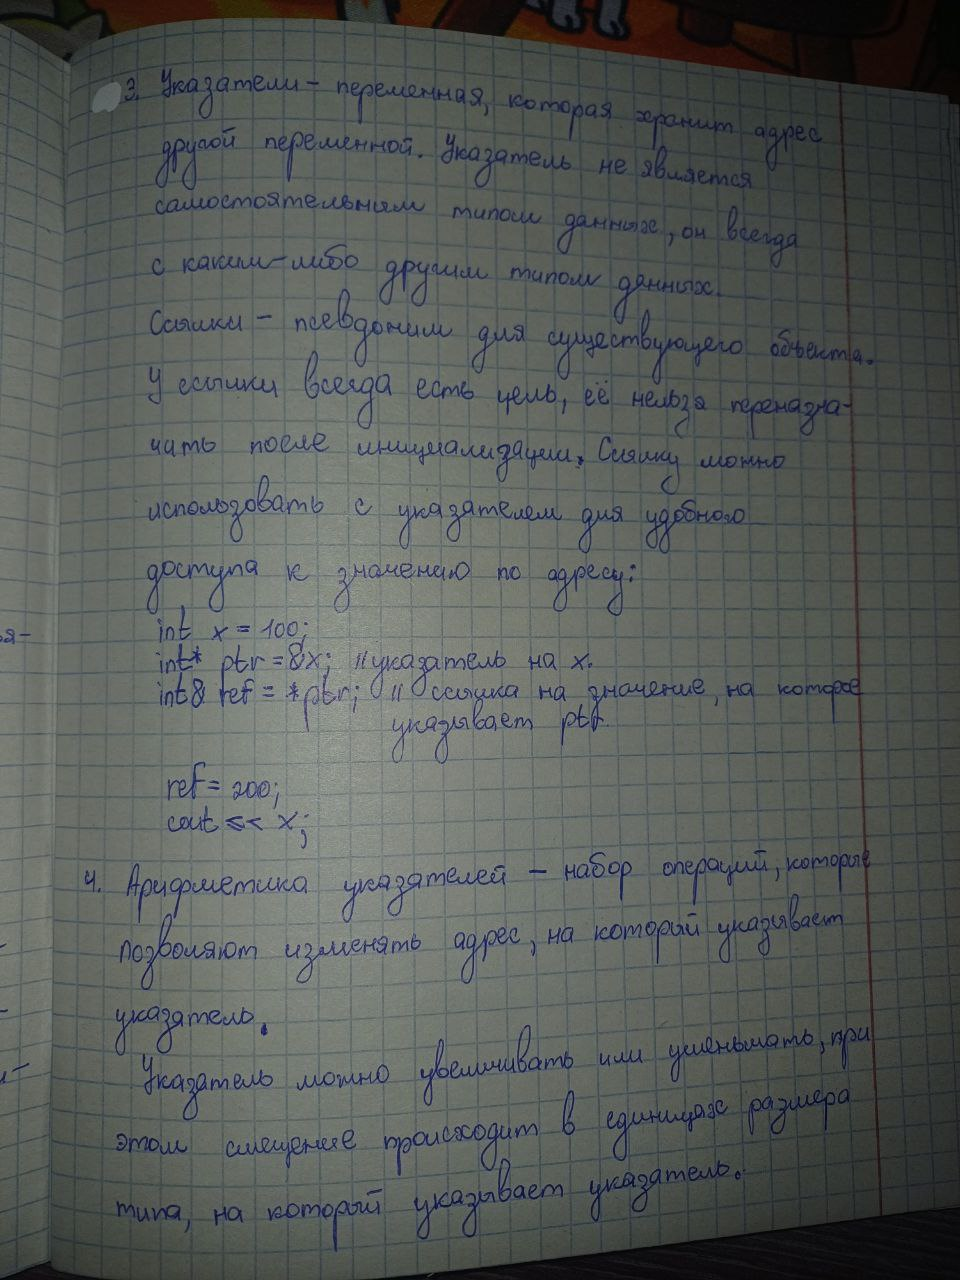 3. Указатели - переменная, которая хранит адрес
другой переменной. Указатель не является
самостоятельным типом данных, он всегда
с каким-либо другим типом данных.
Ссылки - псевдоним для существующего объекта.
У ссылки всегда есть цель, её нельзя переназна-
чить после инициализации. Ссылку можно
использовать с указателем для удобного
доступа к значению по адресу:
int x = 100;
int* ptr = &x; //указатель на x.
int& ref = *ptr; // ссылка на значение, на которое
указывает ptr.
ref = 200;
cout << x;
4. Арифметика указателей - набор операций, которые
позволяют изменять адрес, на который указывает
указатель.
Указатель можно увеличивать или уменьшать, при
этом смещение происходит в единицах размера
типа, на который указывает указатель.